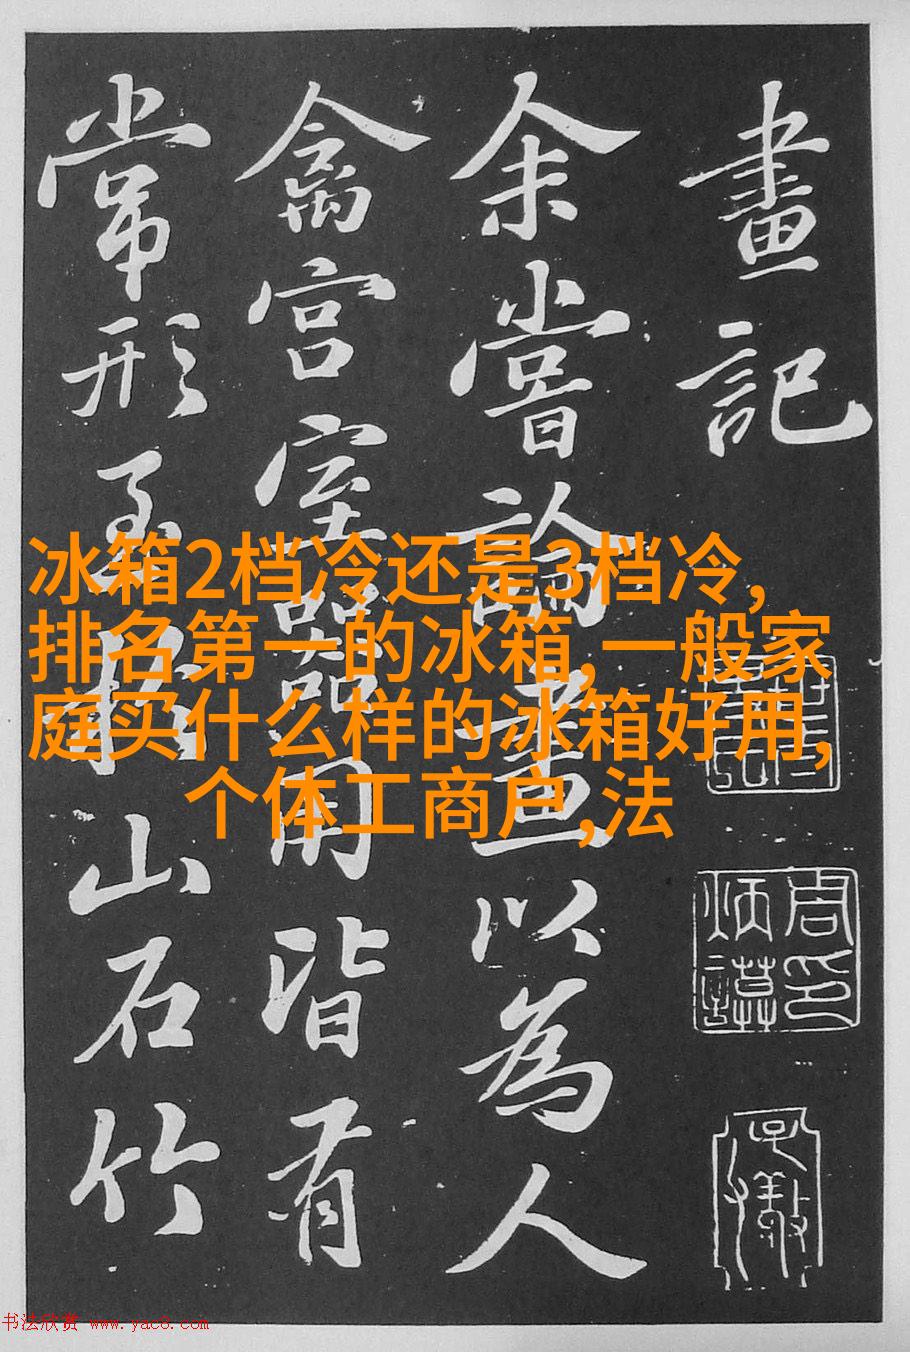 畫記
余嘗論畫以為人
禽宮室器用皆有
常形至於山石竹
冰箱2档冷还是3档冷,
排名第一的冰箱,一般家
庭买什么样的冰箱好用,
个体工商户,法
书法欣赏 www.yac8.com